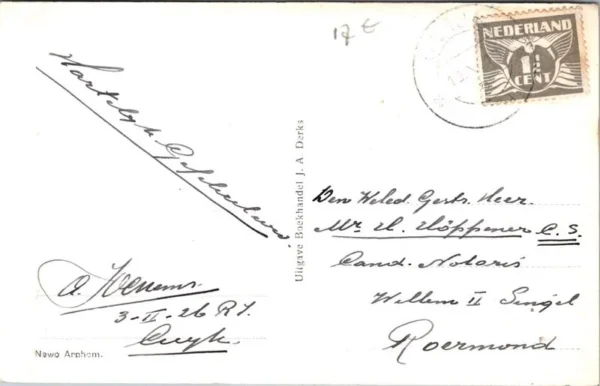 17 €
NEDERLAND
1½
CENT
Hartelijk Gefeliciteerd.
3-II-26 RI.
Cuyk.
Nawo Arnhem.
Uitgave Boekhandel J. A. Derks
Den Weled. Gestr. Heer.
Mr. H. Höppener C. S.
Cand. Notaris
Willem II Singel
Roermond